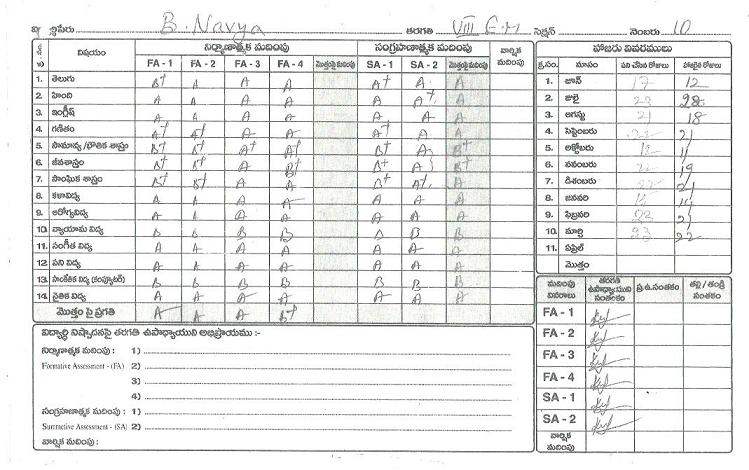 పేరు B. Navya తరగతి VIII E.M సెక్షన్ నెంబరు 10
విషయం నిర్మాణాత్మక మదింపు సంగ్రహణాత్మక మదింపు వార్షిక మదింపు
FA - 1 FA - 2 FA - 3 FA - 4 మొత్తంపై మదింపు SA - 1 SA - 2 మొత్తంపై మదింపు
1. తెలుగు B+ A A A A+ A A
2. హింది A A A A A A+ A
3. ఇంగ్లీష్ A A A A A A A
4. గణితం A+ A+ A A A+ A A
5. సామాన్య / భౌతిక శాస్త్రం B+ B+ A+ A+ B+ A B+
6. జీవశాస్త్రం B+ B+ A B+ B+ A B+
7. సాంఘిక శాస్త్రం B+ B+ A A B+ A+ A
8. కళావిద్య A A A A A A A
9. ఆరోగ్యవిద్య A A A A A A A
10. వ్యాయామ విద్య B B B B B B
11. సంగీత విద్య A A A A A A A
12. పని విద్య A A A A A A A
13. సాంకేతిక విద్య (కంప్యూటర్) B B B B B B B
14. నైతిక విద్య A A A A A A A
మొత్తం పై ప్రగతి A A A B+
విద్యార్థి నిష్పాదనపై తరగతి ఉపాధ్యాయుని అభిప్రాయము :-
నిర్మాణాత్మక మదింపు : 1)
Formative Assessment - (FA) 2)
3)
4)
సంగ్రహణాత్మక మదింపు : 1)
Summative Assessment - (SA) 2)
వార్షిక మదింపు :
హాజరు వివరములు
క్ర.సం. మాసం పని చేసిన రోజులు హాజరైన రోజులు
1. జూన్ 17 12
2. జులై 28
3. ఆగస్టు 21 18
4. సెప్టెంబరు 22 21
5. అక్టోబరు 11
6. నవంబరు 19
7. డిశంబరు 21
8. జనవరి
9. ఫిబ్రవరి 21
10. మార్చి 23 22
11. ఏప్రిల్
మొత్తం
మదింపు వివరాలు తరగతి ఉపాధ్యాయుని సంతకం ప్ర.ఉ.సంతకం తల్లి / తండ్రి సంతకం
FA - 1
FA - 2
FA - 3
FA - 4
SA - 1
SA - 2
వార్షిక మదింపు